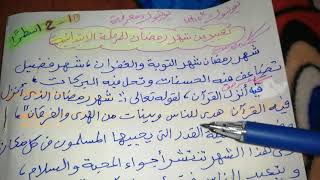 10 - 12 اسطر
تعبير عن شهر رمضان المرحلة الابتدائية
شهر رمضان شهر التوبة والغفران، شهر فضيل
تضاعف فيه الحسنات وتحل فيه البركات
فيه أنزل القرآن، لقوله تعالى: شهر رمضان الذي أنزل
فيه القرآن هدى للناس وبينات من الهدى والفرقان"
القدر التي يحييها المسلمون في كل مكان
هذا الشهر تنتشر أجواء المحبة والسلام،